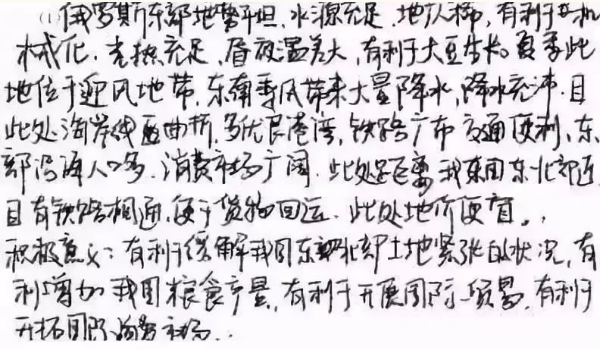 (1)俄罗斯东部地势平坦,水源充足,地广人稀,有利于农机
械化.光热充足,昼夜温差大,有利于大豆生长。夏季此
地位于迎风地带,东南季风带来大量降水,降水充沛.且
此处海岸线曲折,多优良港湾,铁路广布交通便利.东
部沿海人口多.消费市场广阔.此处距离我国东北部近
且有铁路相通,便于货物回运.此处地价便宜。
积极意义:有利于缓解我国东北部土地紧张的状况,有
利增加我国粮食产量,有利于开展国际贸易.有利于
开拓国际消费市场..